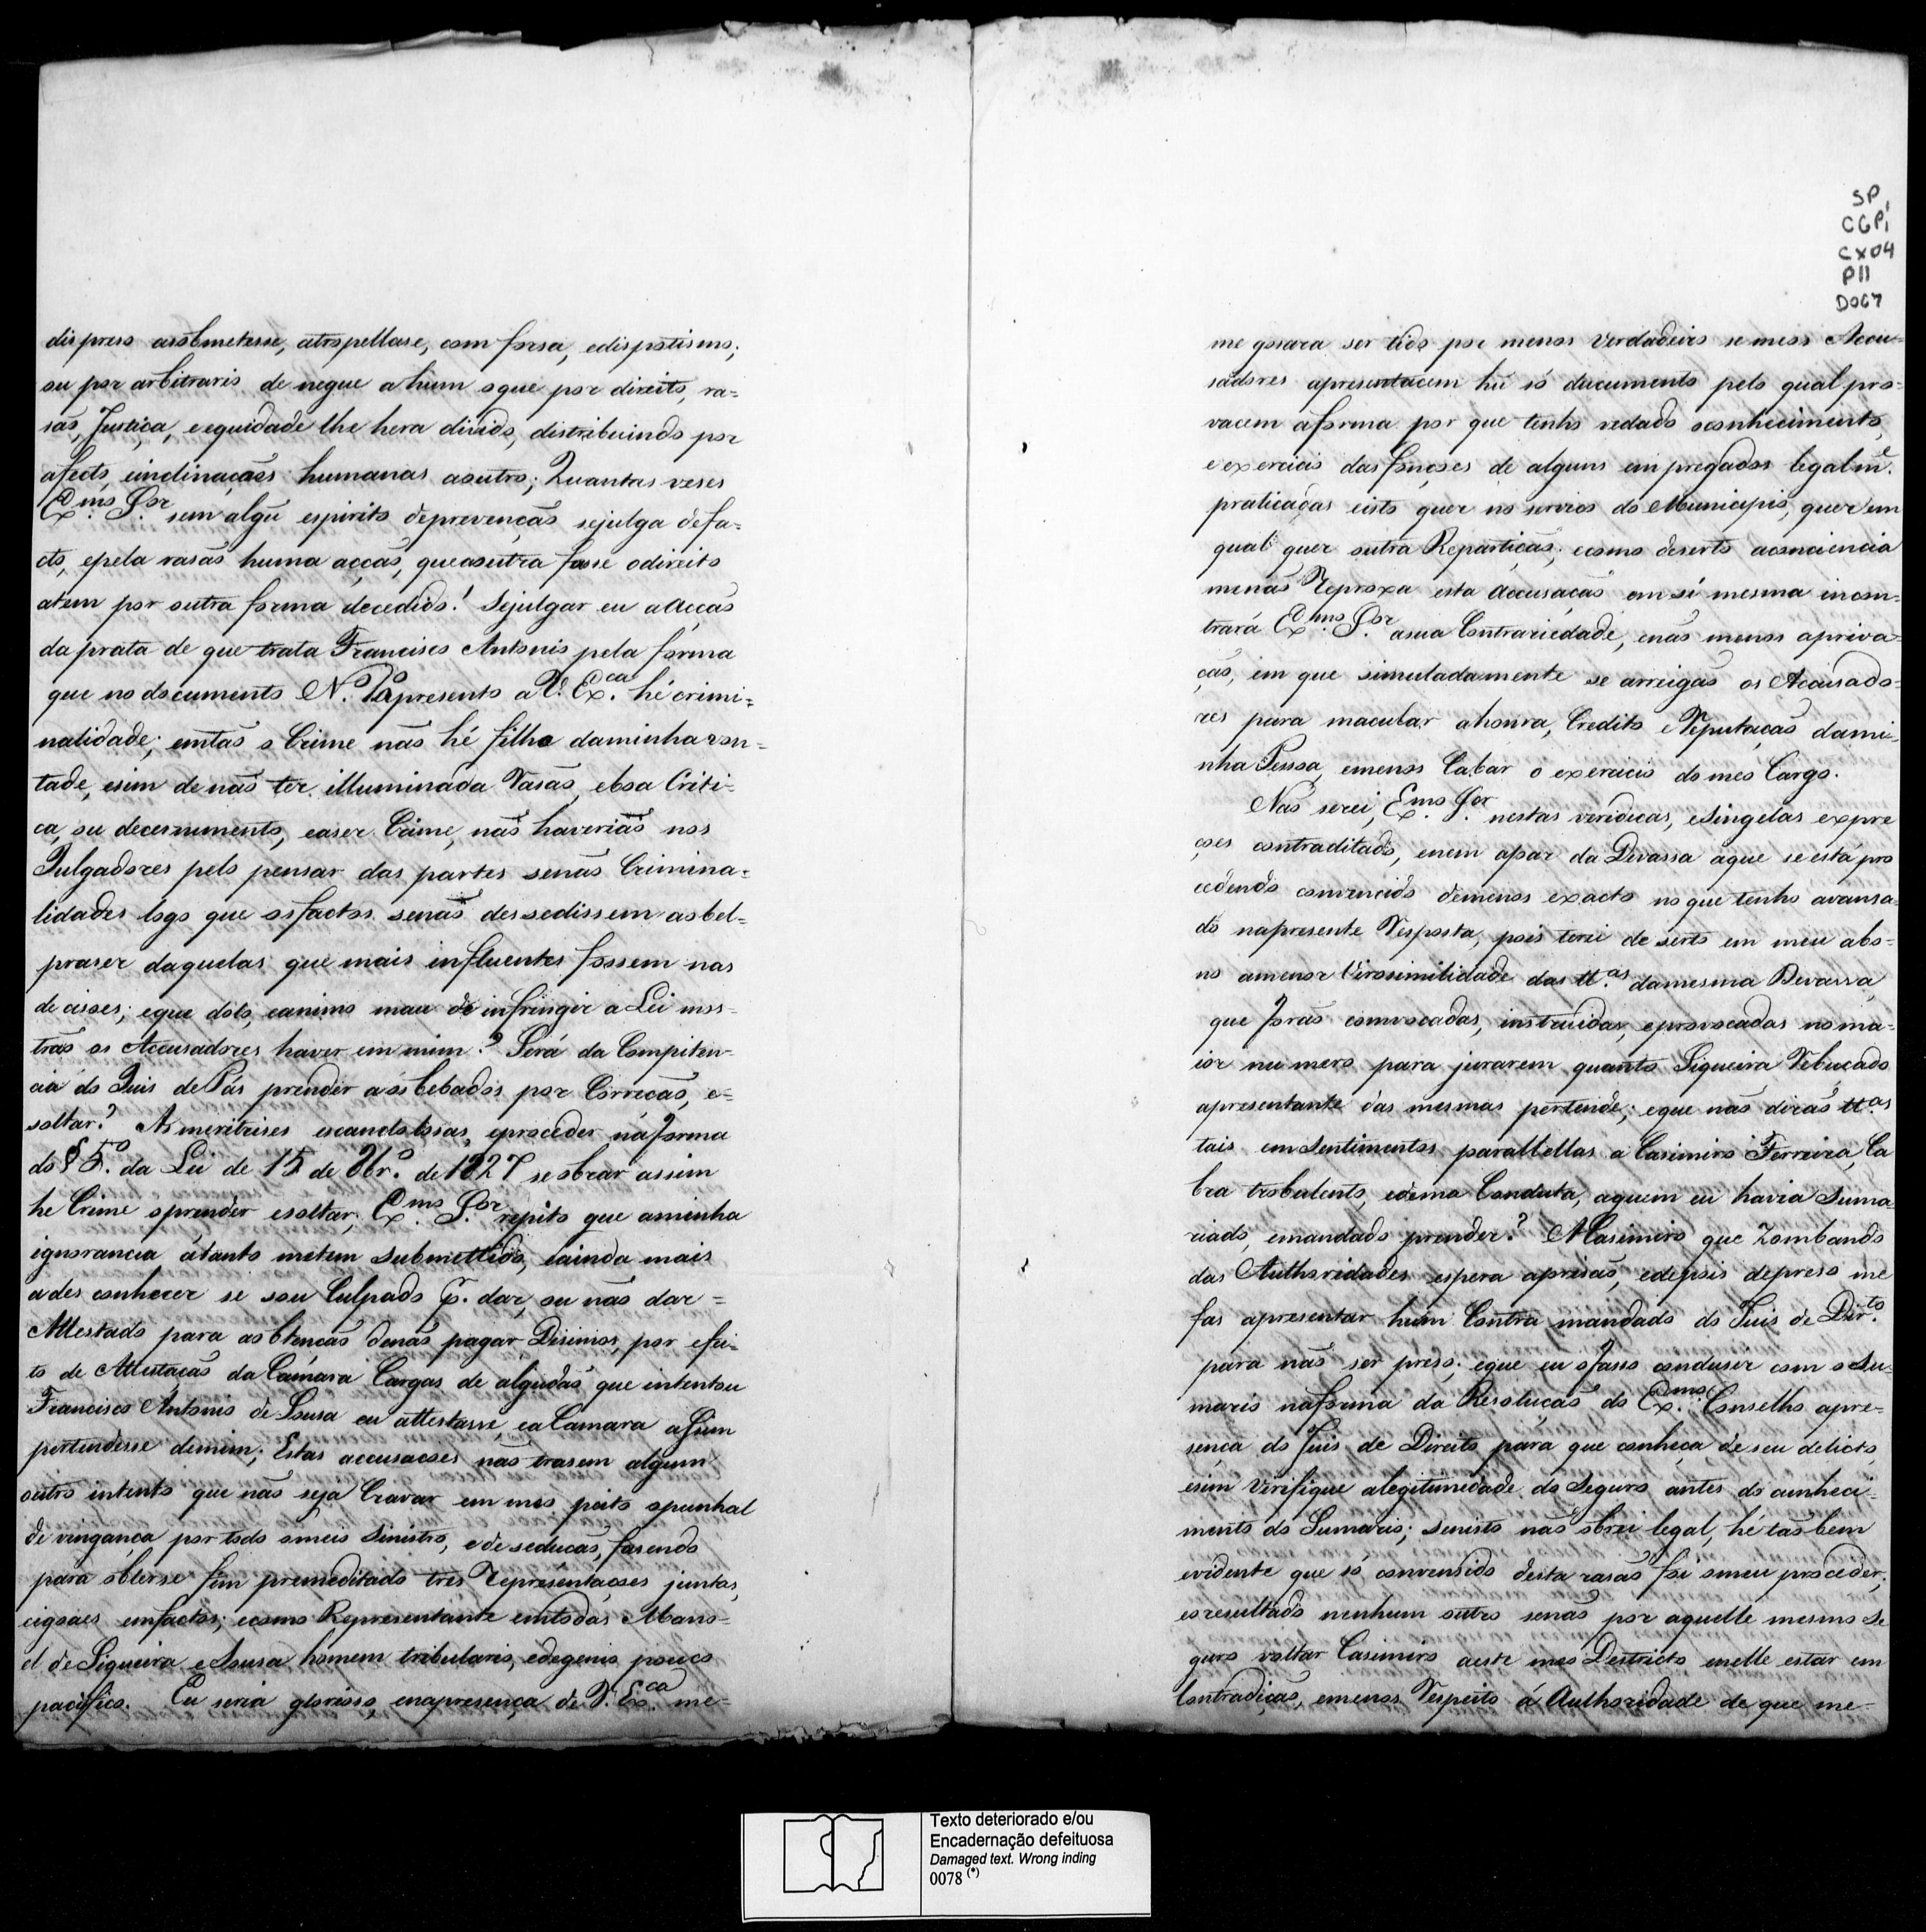 dispreso asobmetesse, atropellase, com forsa, edispotismo;
ou por arbitrario de negue a hum oque por direito, ra=
saõ, Justiça, eequidade lhe hera divido, distribuindo por
afecto, einclinaçaõs humanas aoutro; Quantas veses
Ex.mo S.or sem algũ espirito deprevençaõ sejulga defa=
cto, epela rasaõ huma acçaõ, queaoutra fosse odireito
atem por outra forma decedido! Sejulgar eu aAcçaõ
da prata de que trata Francisco Antonio pela forma
que no documento N.o apresento a V. Ex.ca hé crimi=
nalidade; emtaõ o Crime naõ hé filho daminha von=
tade, esim de naõ ter illuminada Rasaõ, eboa Criti=
ca, ou decernimento, easer Crime, naõ haveriaõ nos
Julgadores pelo pensar das partes senaõ Crimina=
lidades logo que osfactos senaõ dessedissem aobel=
praser daquelas que mais influentes fossem nas
decisoes; eque dolo, eanimo mau de infringir a Lei mos=
traõ os Accusadores haver em mim? Será da Compiten=
cia do Juis de Pás prender aós bebados por Correcaõ, e=
soltar? As meritrises escandolosas, eproceder náforma
do § 5.o da Lei de 15 de 8br.o de 1827 se obrar assim
he Crime oprender esoltar; Ex.mo S.or repito que aminha
ignorancia átanto metem submettido, eainda mais
ades conhecer se sou Culpado p.r dar, ou naõ dar=
Attestado para aobtencaõ denaõ pagar Disimos, por efei=
to de Attestaçaõ da Camara Cargas de algudaõ que intentou
Francisco Antonio de Sousa eu attestasse, ea Camara assim
pertendesse demim; Estas accusacoes naõ trasem algum
outro intento que naõ seja Cravar em meo peito opunhal
de vingança por todo omeio Sinistro, e de seducaõ, fasendo
para obterse fim premeditado tres Representaçoes juntas,
eigoaes emfactos; ecomo Representante emtodas Mano=
el de Siqueira e Sousa homem tribulario, edegenio pouco
pacifico. Eu seria glorioso, enapresença de V. Ex.ca me=
SP,
CGP,
CX04
P11
DOC7
me gosara ser tido por menos Verdadeiro se meos Accu=
sadores apresentacem hũ só documento pelo qual pro=
vacem aforma por que tenho vedado oconhecimento,
eexercicio dasfonçoes de alguns empregados legalm.e
praticadas eisto quer no servico do Municipio, quer em
qual quer outra Repartiçaõ; ecomo deserto aconciencia
menaõ Reproxa esta accusaçaõ em si mesma incon=
trará Ex.mo S.or asua Contrariedade, enaõ menos apriva=
çaõ, em que simuladamente se arreigaõ os Acusado=
res para macular ahonra, Credito eReputacaõ dami=
nha Pessoa, emenos Cabar o exercicio do meo Cargo.
Naõ serei, Ex.mo S.or nestas veridicas, eSingelas expre
çoes contraditado, enem apar da Devassa aque se está pro
cedendo convencido demenos exacto no que tenho avansa=
do napresente Resposta, pois terei de serto em meu abo=
no amenor Verosimilidade das tt.as damesma Devassa,
que foraõ convocadas, instruidas, eprovocadas noma=
ior numero para jurarem quanto Siqueira Rebuçado
apresentante das mesmas pertende; eque naõ diraõ tt.as
tais emSentimentos parallellas a Casimiro Ferreira, Ca
bra trobulento, edema Conduta, aquem eu havia Suma
riado, emandado prender? A Casimiro que Zombando
das Authoridades espera aprisaõ, edepois depreso me
fas apresentar hum Contra mandado do Juis de Dir.to
para naõ ser preso; eque eu ofasso condusir com o Su=
mario naforma da Resoluçaõ do Ex.mo Conselho apre=
sença do Juis de Direito para que conheça de seu delicto,
esim Verifique alegitimidade do Seguro antes do conheci=
mento do Sumario; senisto naõ obrei legal, hé taõ bem
evidente que só convensido desta rasaõ foi omeu proceder;
eoresultado nenhum outro senaõ por aquelle mesmo Se
guro voltar Casimiro aeste meo Destricto enelle estar em
Contradiçaõ, emenos Respeito á Authoridade de que me=
Texto deteriorado e/ou
Encadernação defeituosa
Damaged text. Wrong inding
0078 (*)